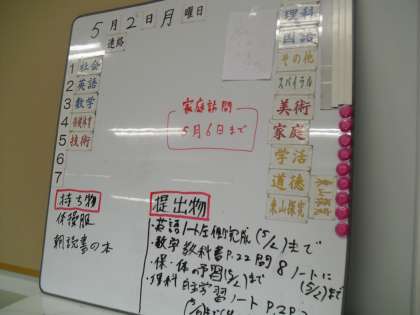 5月2日月曜日
連絡
1 社会
2 英語
3 数学
4 保健体育
5 技術
6
7
家庭訪問
5月6日まで
持ち物
体操服
朝読書の本
提出物
・英語ノート左側完成(5/2)まで
・数学 教科書P.22 問8 ノートに(5/2)まで
・保・体の予習(5/2)まで
・理科 自主学習ノート P.2
理科
国語
その他
スパイラル
美術
家庭
学活
道徳
東山探究
東山探究